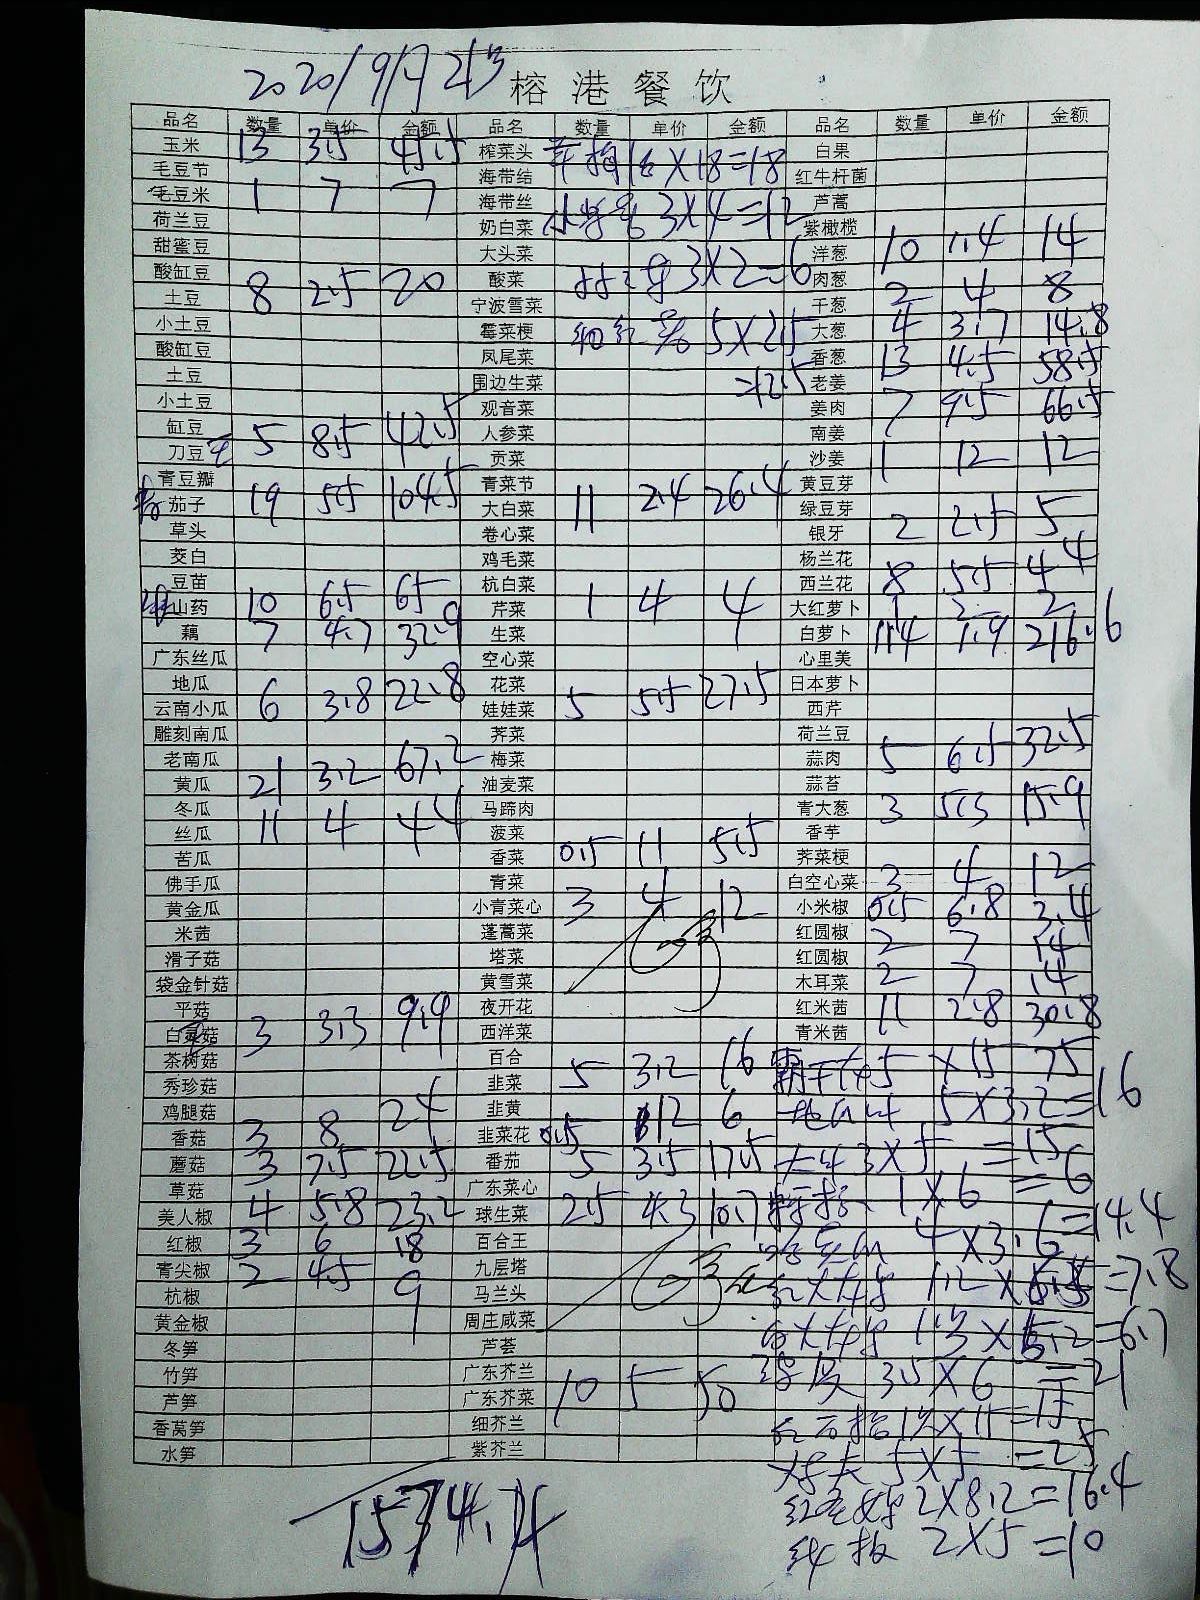 2020/9月21号 榕港餐饮
品名 数量 单价 金额 品名 数量 单价 金额 品名 数量 单价 金额
玉米 13 3.5 45.5 榨菜头 16 X18=18 白果
毛豆节 海带结 红牛杆菌
毛豆米 1 7 7 海带丝 3X4=12 芦蒿
荷兰豆 奶白菜 紫橄榄
甜蜜豆 大头菜 3X2=6 洋葱 10 1.4 14
酸缸豆 酸菜 肉葱
土豆 8 2.5 20 宁波雪菜 干葱 2 4 8
小土豆 霉菜梗 5X2.5 大葱 4 3.7 14.8
酸缸豆 凤尾菜 香葱 13 4.5 58.5
土豆 围边生菜 =12.5 老姜
小土豆 观音菜 姜肉 7 9.5 66.5
缸豆 5 8.5 42.5 人参菜 南姜
刀豆 贡菜 沙姜 1 12 12
青豆瓣 青菜节 黄豆芽
茄子 19 5.5 104.5 大白菜 11 2.4 26.4 绿豆芽
草头 卷心菜 银牙 2 2.5 5
茭白 鸡毛菜 杨兰花
豆苗 杭白菜 西兰花 8 5.5 44
山药 10 6.5 65 芹菜 1 4 4 大红萝卜 1 2 2
藕 7 4.7 32.9 生菜 白萝卜 114 1.9 216.6
广东丝瓜 空心菜 心里美
地瓜 花菜 日本萝卜
云南小瓜 6 3.8 22.8 娃娃菜 5 5.5 27.5 西芹
雕刻南瓜 荠菜 荷兰豆
老南瓜 梅菜 蒜肉 5 6.5 32.5
黄瓜 21 3.2 67.2 油麦菜 蒜苔
冬瓜 马蹄肉 青大葱 3 5.3 15.9
丝瓜 11 4 44 菠菜 香芋
苦瓜 香菜 0.5 11 5.5 荠菜梗
佛手瓜 青菜 白空心菜 3 4 12
黄金瓜 小青菜心 3 4 12 小米椒 0.5 6.8 3.4
米茜 蓬蒿菜 红圆椒 2 7 14
滑子菇 塔菜 红圆椒
袋金针菇 黄雪菜 木耳菜 2 7 14
平菇 夜开花 红米茜 11 2.8 30.8
白灵菇 3 3.3 9.9 西洋菜 青米茜
茶树菇 百合 5 X15 75
秀珍菇 韭菜 5 3.2 16 5X3.2=16
鸡腿菇 韭黄 12 6
香菇 3 8 24 韭菜花 0.5 3X5 =15
蘑菇 3 7.5 22.5 番茄 5 3.5 17.5
草菇 广东菜心 1X6 =6
美人椒 4 5.8 23.2 球生菜 2.5 4.3 10.7
红椒 3 6 18 百合王 4X3.6=14.4
青尖椒 2 4.5 9 九层塔
杭椒 马兰头 1.2X6.5=7.8
黄金椒 周庄咸菜
冬笋 芦荟 1.3X5.2=6.7
竹笋 广东芥兰 皮 3.5X6 =21
芦笋 广东芥菜 10 5 50
香莴笋 细芥兰 X15=15
水笋 紫芥兰 5X5 =25
2X8.2=16.4
2X5 =10
1574.4